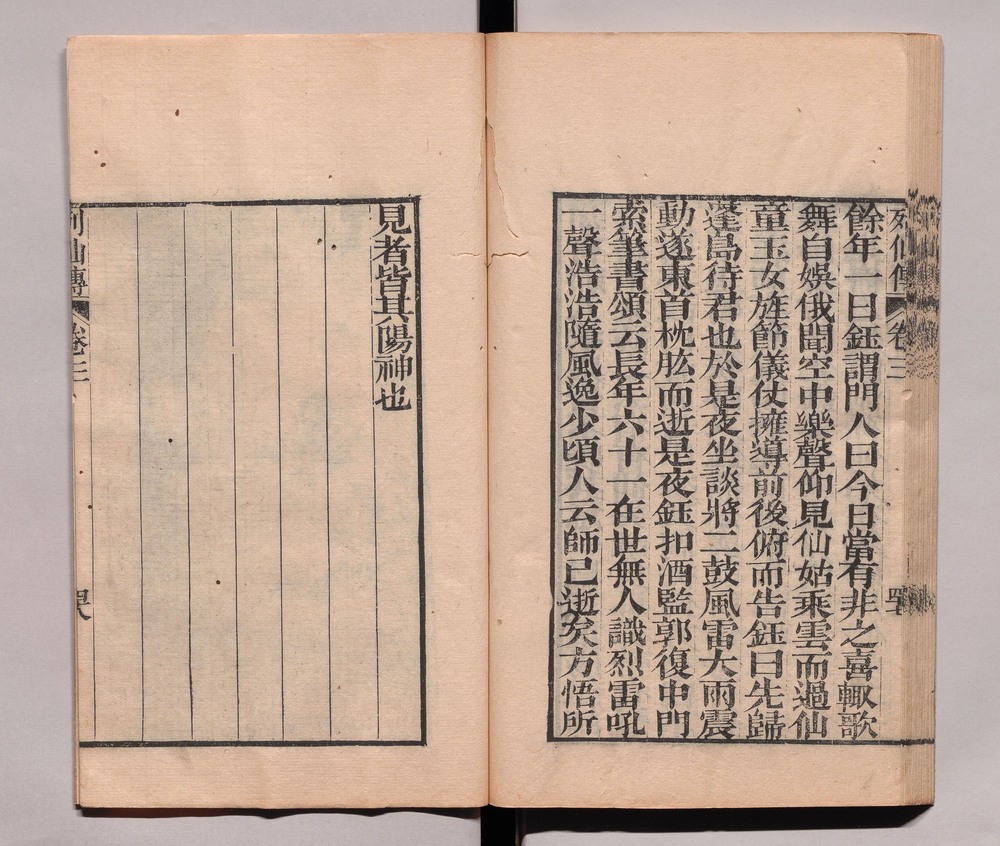 列仙傳 卷三
餘年一日鈺謂門人曰今日當有非之喜輙歌
舞自娛俄聞空中樂聲仰見仙姑乘雲而過仙
童玉女旌節儀仗擁導前後俯而告鈺曰先歸
蓬島待君也於是夜坐談將二鼓風雷大雨震
動遂東首枕肱而逝是夜鈺扣酒監郭復中門
索筆書頌云長年六十一在世無人識烈雷吼
一聲浩浩隨風逸少頃人云師已逝矣方悟所
見者皆其陽神也
列仙傳 卷三